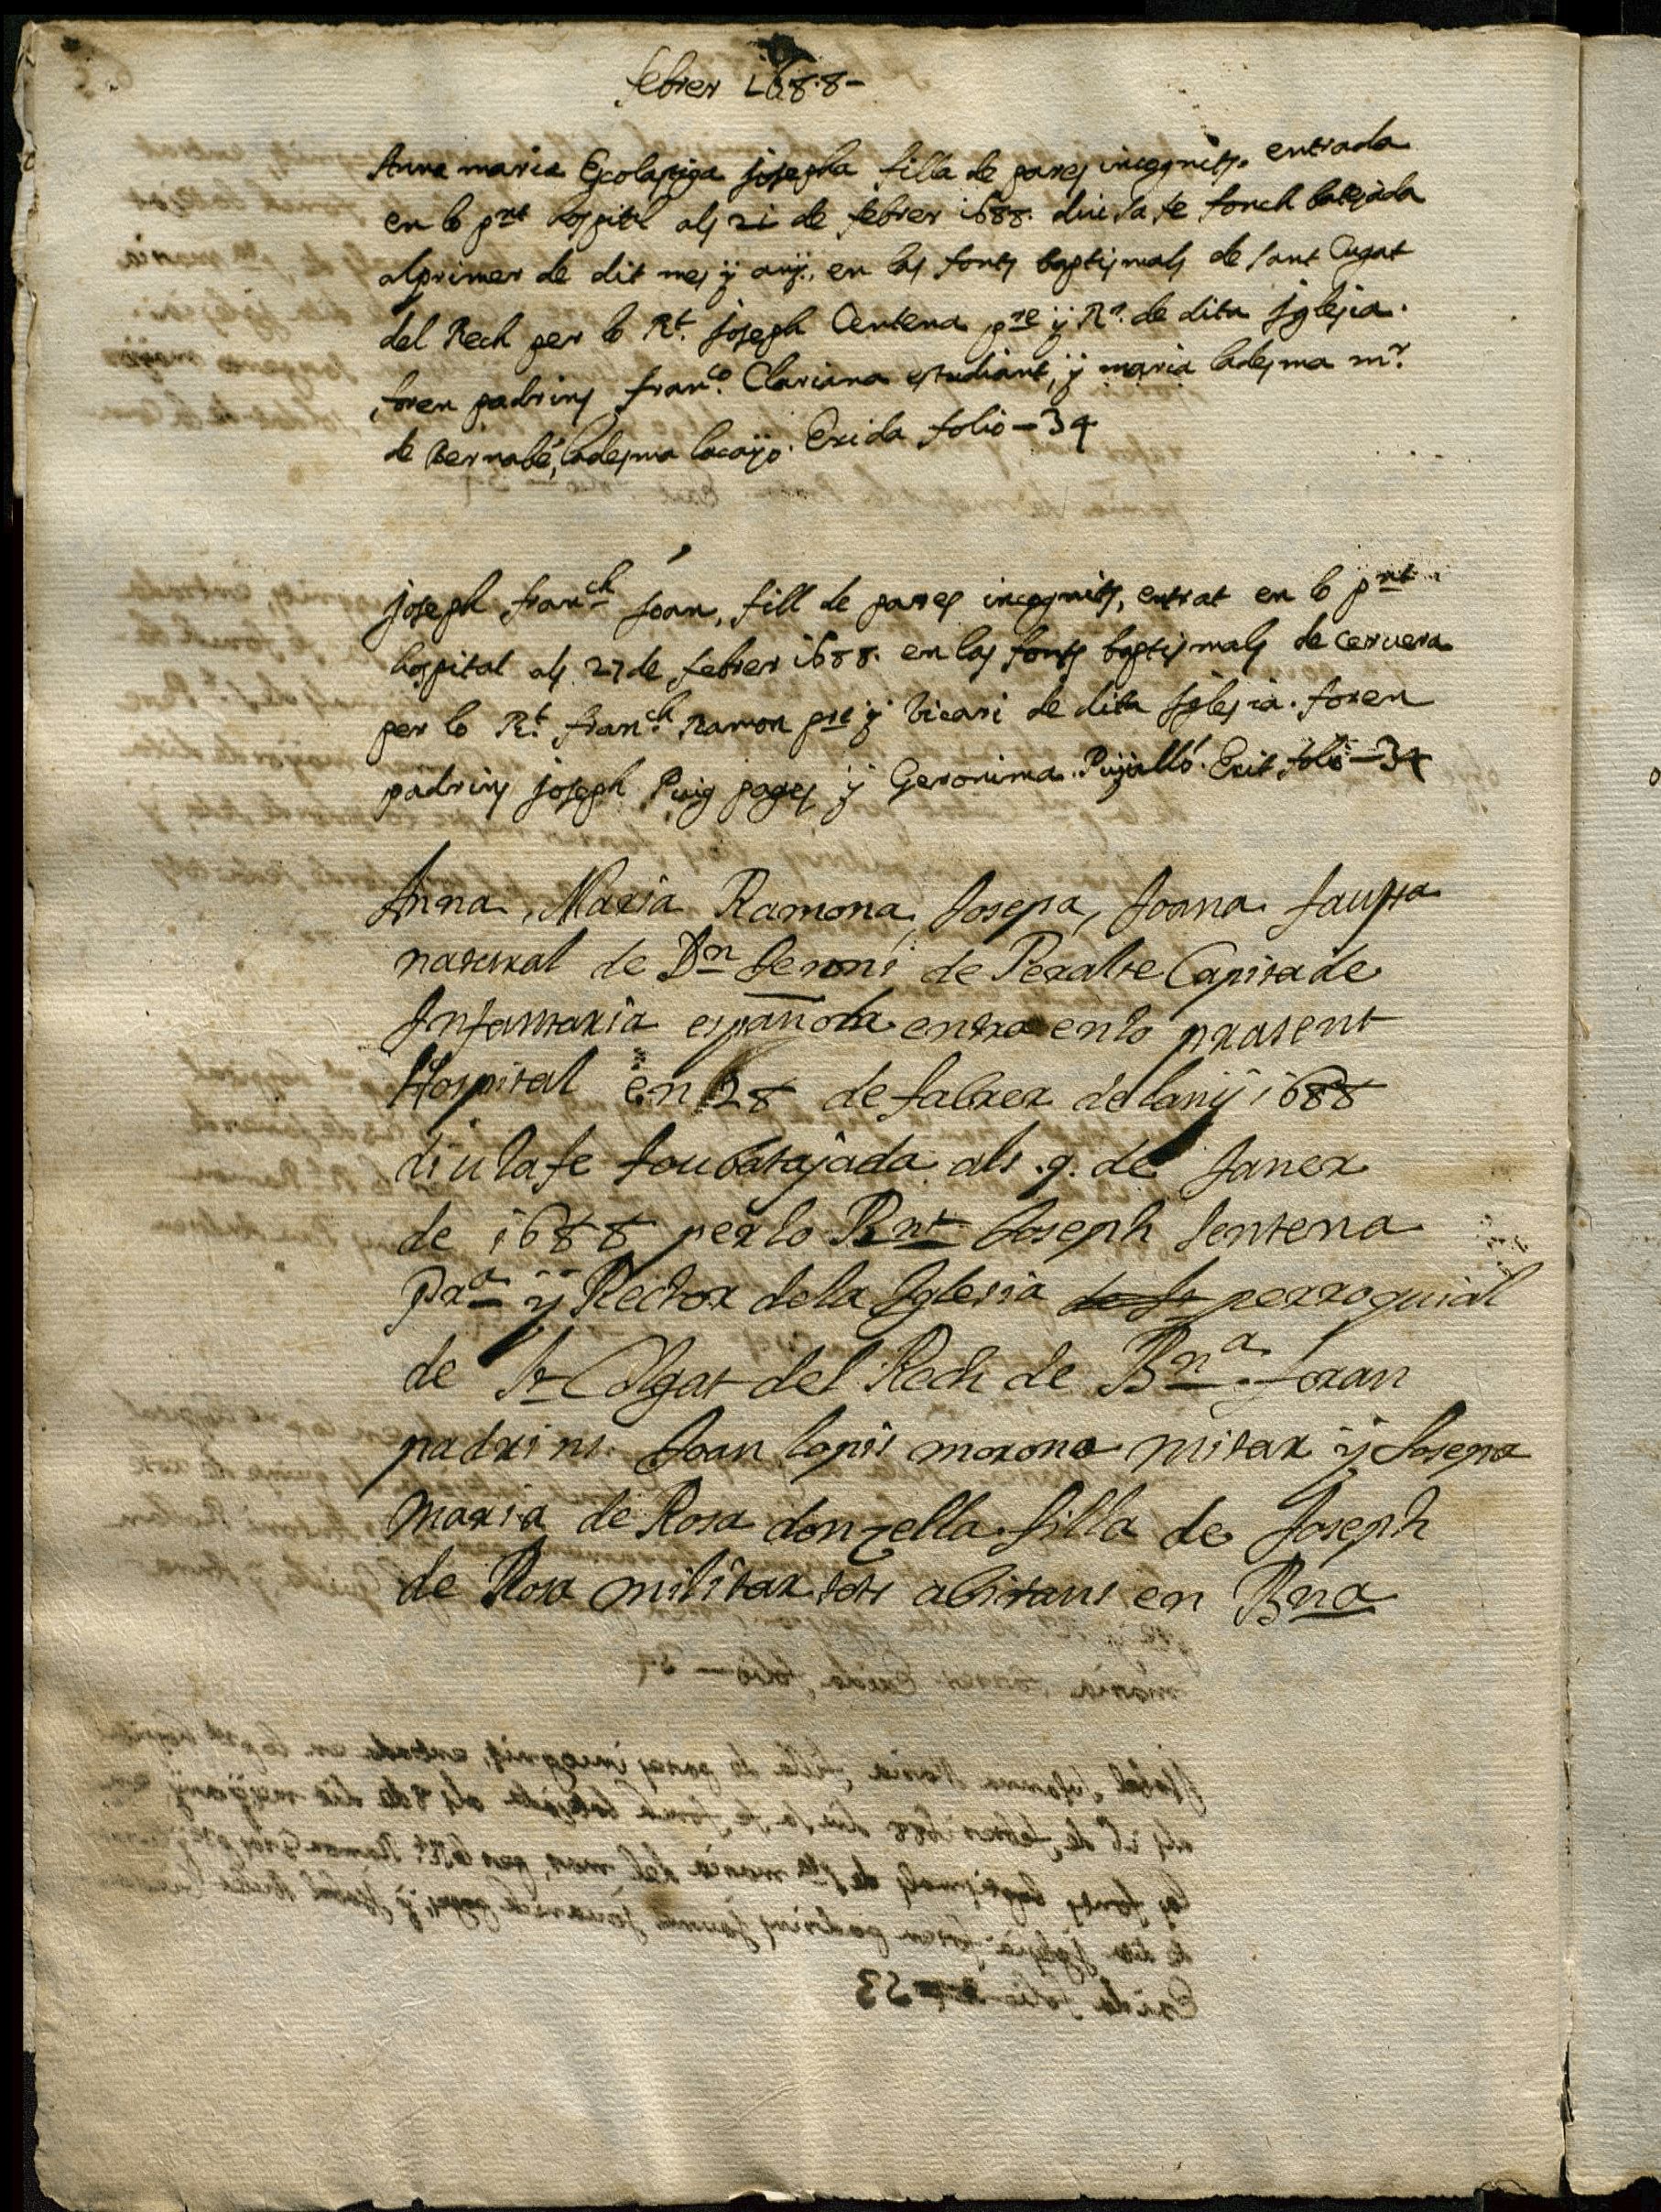 febrer 1688-
Anna maria Escolastiga josepha filla de pares incognits. entrada
en lo pnt hospitl als 21 de febrer 1688. diu la fe fonch batejada
al primer de dit mes ÿ anÿ., en las fonts baptismals de sant Cugat
del Rech per lo Rt. Joseph Centena pre ÿ Rr. de dita Iglesia.
foren padrins franco. Clariana estudiant, ÿ maria ladesma mr.
de Bernabé, ladesma lacayo. Exida folio - 34
joseph franch Joan, fill de pares incognits, entrat en lo pnt
hospital als 27 de febrer 1688. en las fonts baptismals de cervera
per lo Rt. franch Ramon pre ÿ Vicari de dita Iglesia. foren
padrins joseph Puig pages ÿ Geronima Pujalló. Exit folio - 34
Anna, Maria Ramona, Josepa, Joana fausta
natural de Dn Jeroni de Peralte Capita de
Infantaria española entra en lo prasent
Hospital en 28 de fabrer de lanÿ 1688
diu la fe fou batajada als .9. de Janer
de 1688 per lo Rnt Joseph Sentena
Pra ÿ Rector de la Iglesia de St perroquial
de St Cugat del Rech de Bna. foran
padrins. Joan lopis morono mitar ÿ Josepa
maria de Rosa donzella filla de Joseph
de Rosa militar tots abitans en Bna